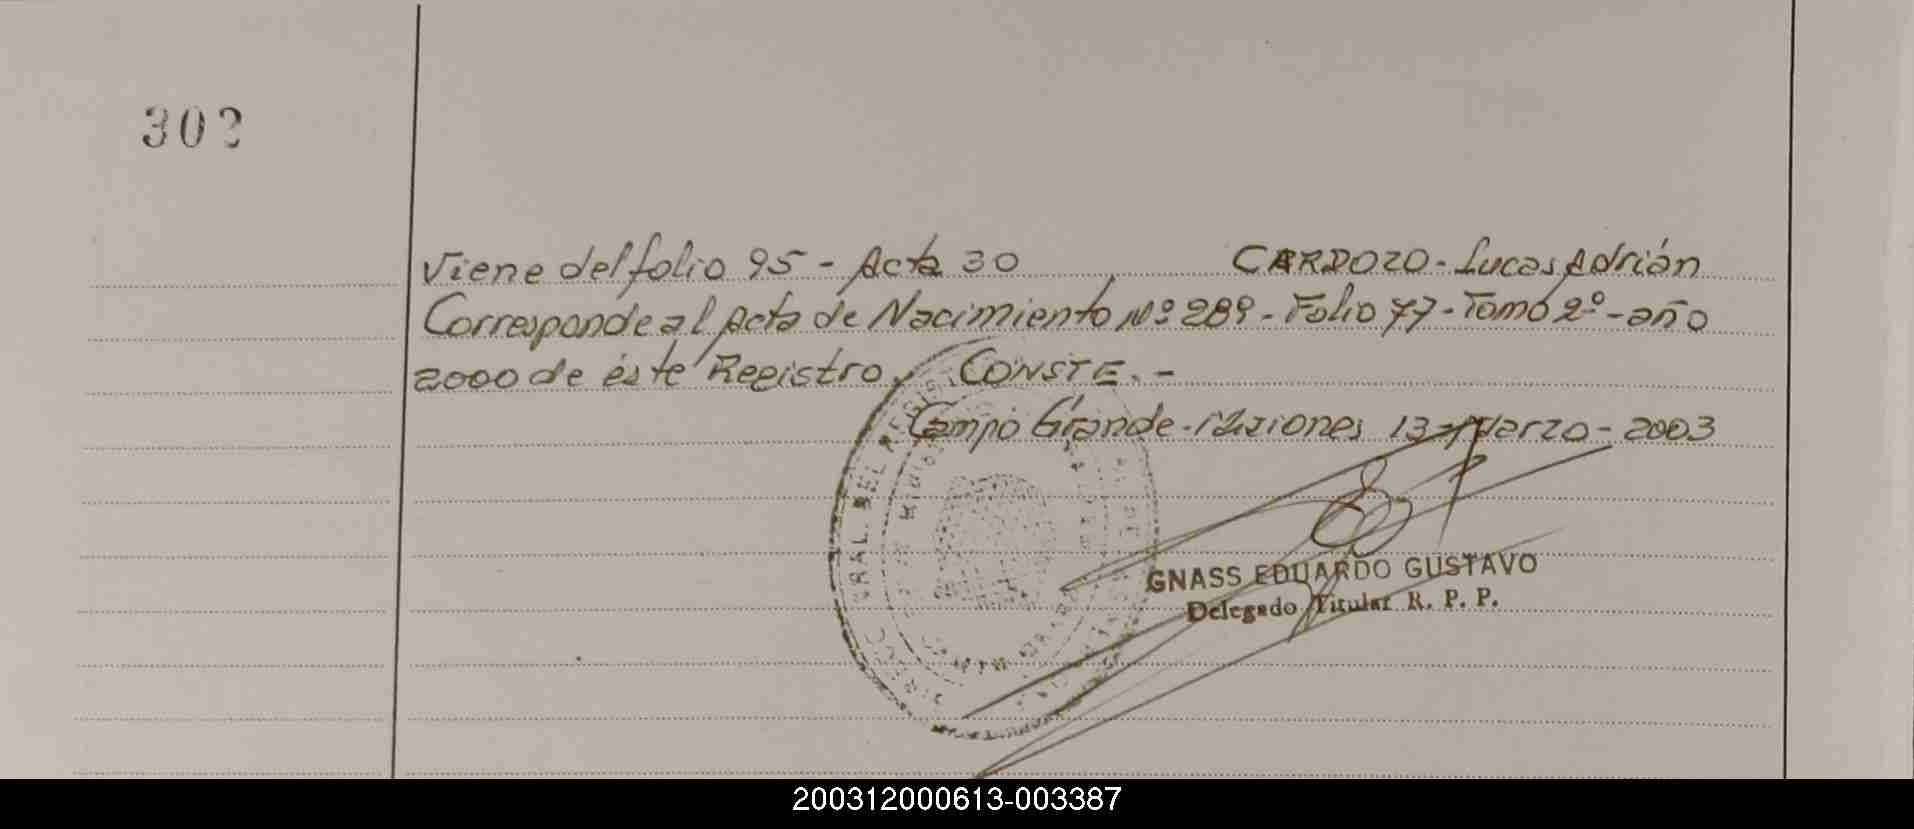 302
Viene del folio 95 - Acta 30 CARDOZO - Lucas Adrián
Corresponde al Acta de Nacimiento Nº 289 - Folio 77 - Tomo 2º - año
2000 de éste Registro, CONSTE. -
Campo Grande - Misiones, 13 - Marzo - 2003
GNASS EDUARDO GUSTAVO
Delegado Titular R. P. P.
200312000613-003387